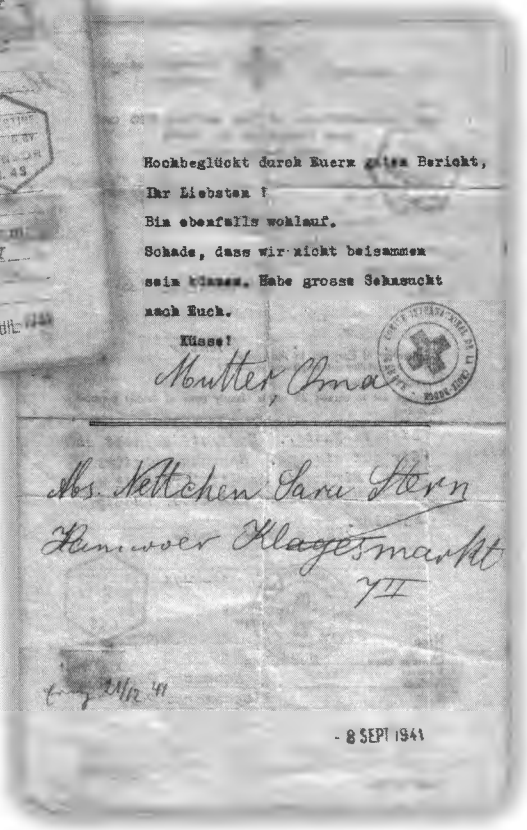 Hochbeglückt durch Euern guten Bericht,
Ihr Liebsten !
Bin ebenfalls wohlauf.
Schade, dass wir nicht beisammen
sein können. Habe grosse Sehnsucht
nach Euch.
Küsse!
Mutter, Oma
Abs. Nettchen Sara Stern
Hannover Klagesmarkt
7II
21/12 41
- 8 SEPT 1941